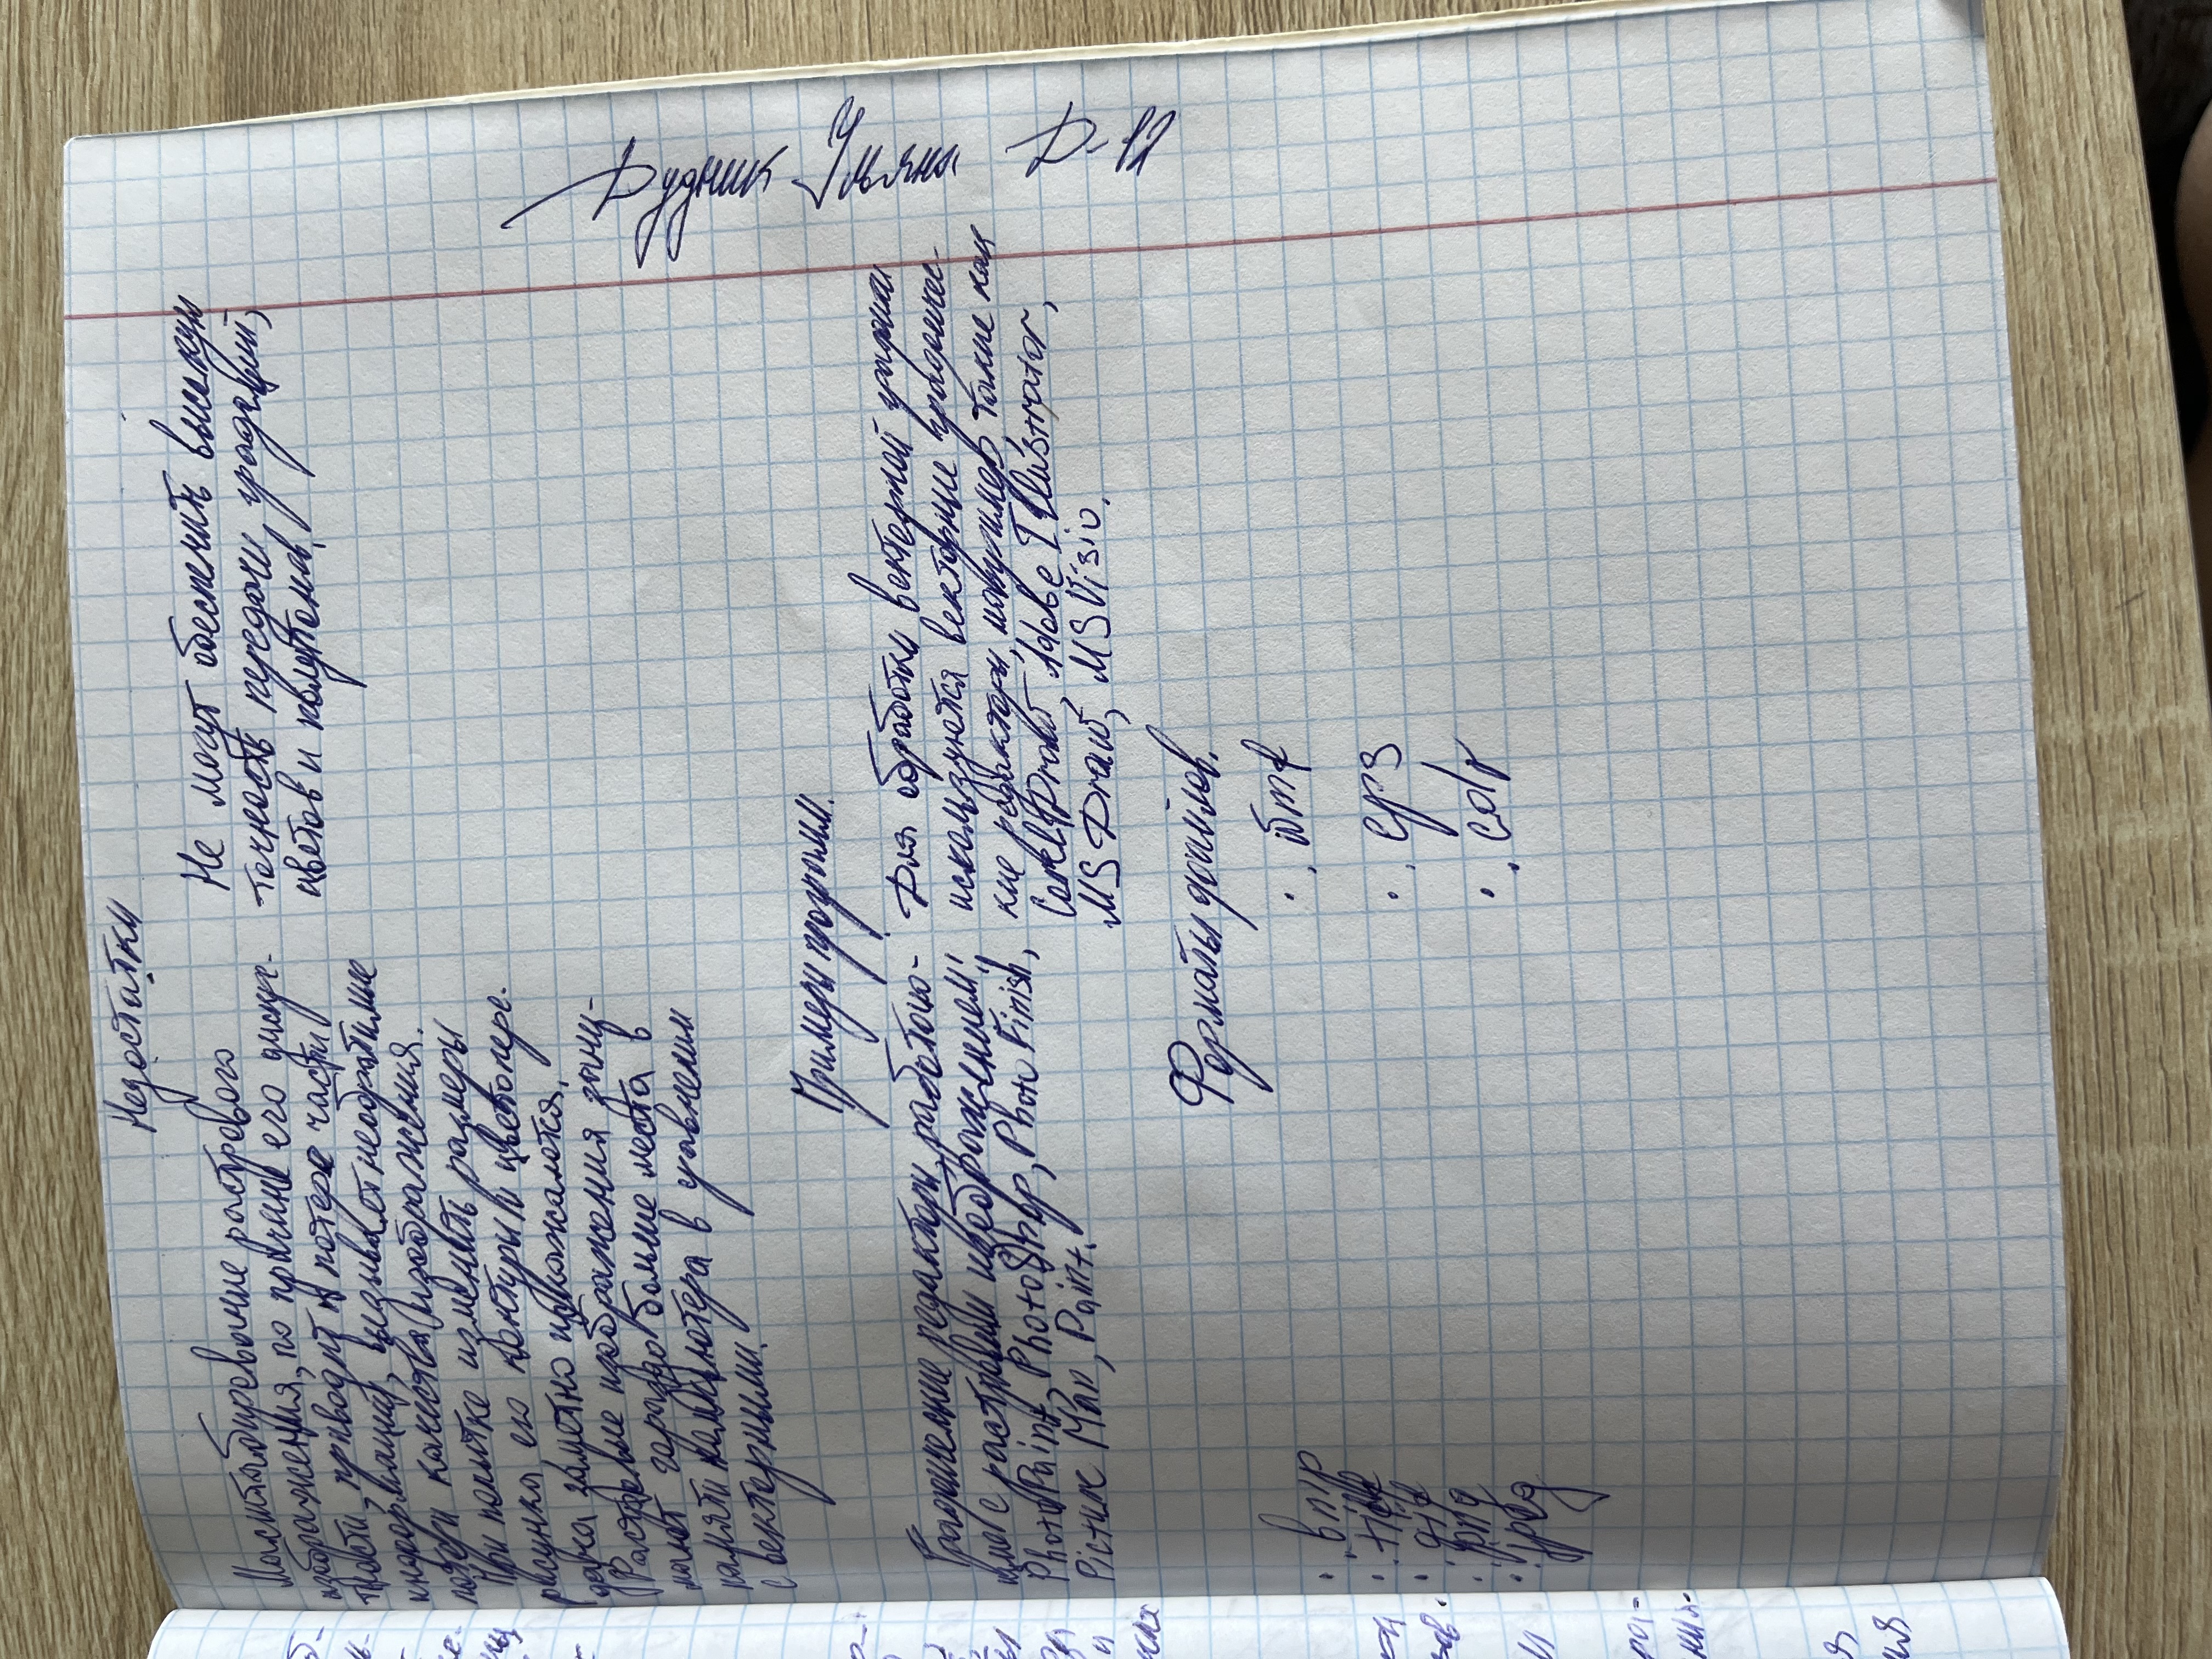 Недостатки
Масштабирование растрового
изображения, по причине его дискрет-
ности приводит к потере части
информации, вызывает необратимые
потери качества изображения.
При попытке изменить размеры
рисунка его контуры и цветопере-
дача заметно искажаются.
Растровые изображения зани-
мают гораздо больше места в
памяти компьютера в
с векторными.
Не могут обеспечить высокую
точность передачи градаций,
цветов и полутонов.
Примеры программ.
редакторы, работаю-
щие с растровыми изображением:
PhotoPaint, PhotoShop, Photo Finish,
Picture Man, Paint.
Для обработки векторной графики
используются векторные графичес-
кие редакторы, такие как
CorelDraw, Adobe Illustrator,
MS Draw, MS Visio.
Форматы файлов.
• .tiff
• .gif
• .png
• .jpeg
• .wmf
• .eps
• .cdr
Дудник Ульяна Д-12